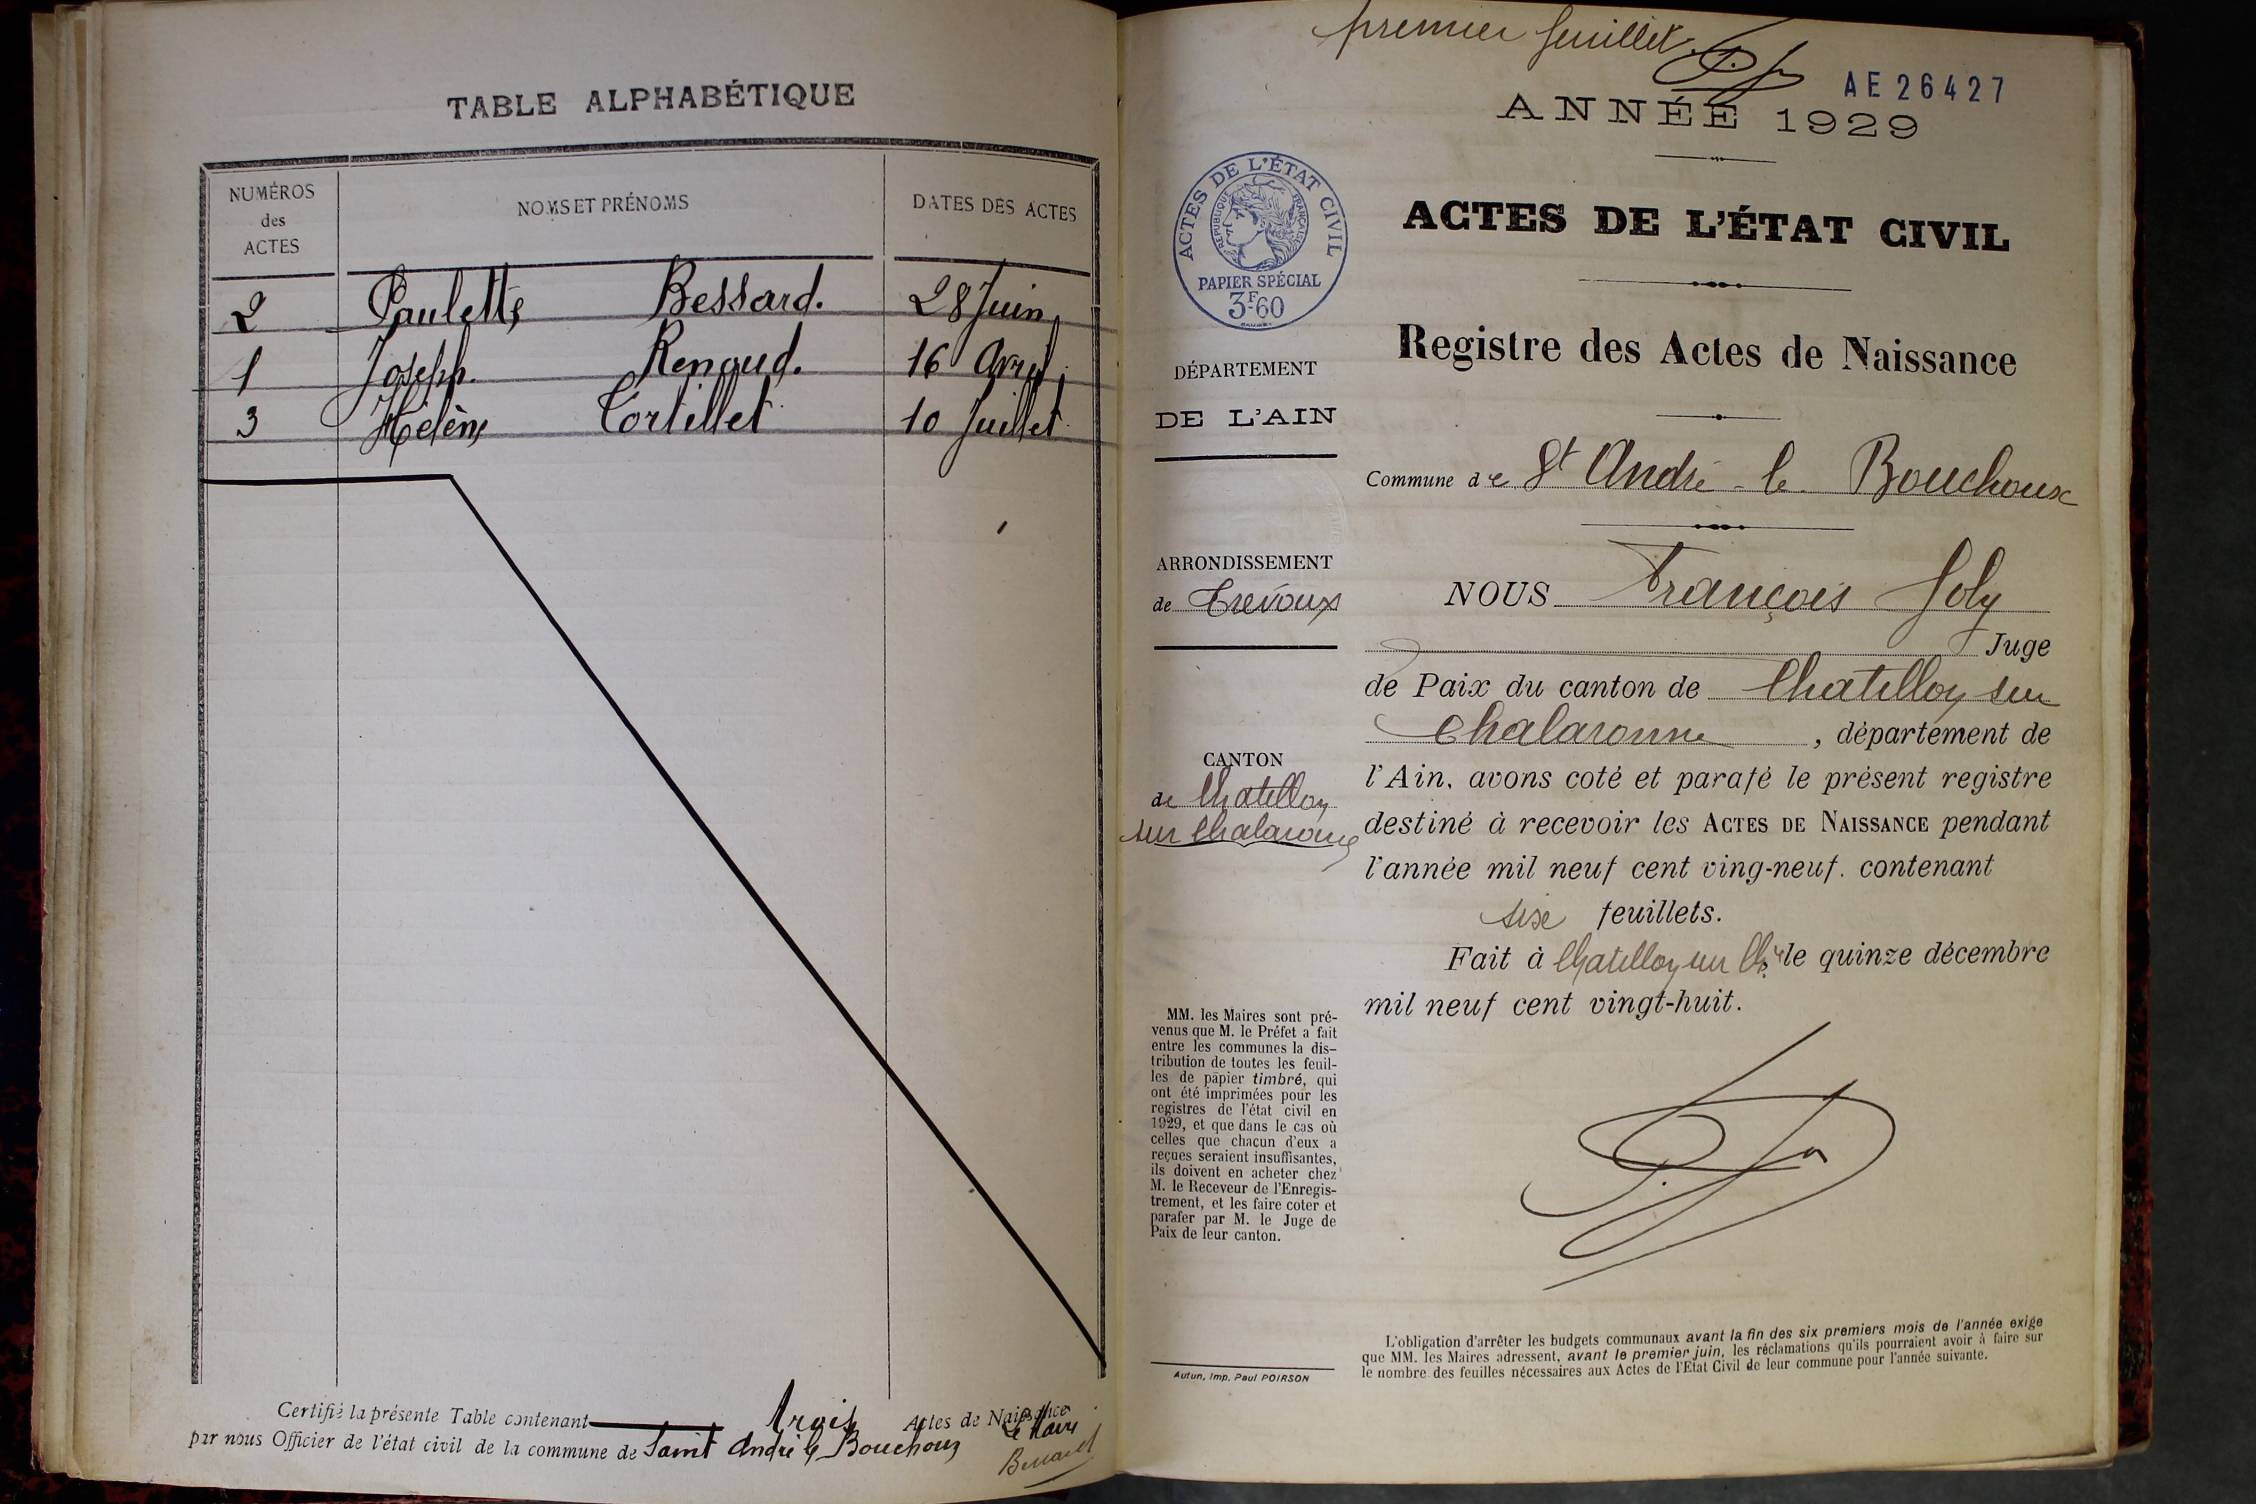 TABLE ALPHABÉTIQUE
NUMÉROS des ACTES
NOMS ET PRÉNOMS
DATES DES ACTES
2 Paulette Bessard. 28 Juin
1 Joseph. Renoud. 16 Avril
3 Hélène Tortillet 10 Juillet
Certifié la présente Table contenant trois Actes de Naissance
par nous Officier de l'état civil de la commune de Saint André le Bouchoux
Le Maire
premier feuillet.
AE 26427
ANNÉE 1929
ACTES DE L'ÉTAT CIVIL
RÉPUBLIQUE FRANÇAISE
PAPIER SPÉCIAL
3F-60
ACTES DE L'ÉTAT CIVIL
Registre des Actes de Naissance
DÉPARTEMENT
DE L'AIN
Commune de St André-le Bouchoux
ARRONDISSEMENT
de Trévoux
CANTON
de Chatillon
sur Chalaronne
MM. les Maires sont pré-
venus que M. le Préfet a fait
entre les communes la dis-
tribution de toutes les feuil-
les de papier timbré, qui
ont été imprimées pour les
registres de l'état civil en
1929, et que dans le cas où
celles que chacun d'eux a
reçues seraient insuffisantes,
ils doivent en acheter chez
M. le Receveur de l'Enregis-
trement, et les faire coter et
parafer par M. le Juge de
Paix de leur canton.
Autun, Imp. Paul POIRSON
NOUS François Joly
Juge
de Paix du canton de Chatillon sur
Chalaronne, département de
l'Ain, avons coté et parafé le présent registre
destiné à recevoir les ACTES DE NAISSANCE pendant
l'année mil neuf cent ving-neuf. contenant
six feuillets.
Fait à Chatillon sur Ch. le quinze décembre
mil neuf cent vingt-huit.
L'obligation d'arrêter les budgets communaux avant la fin des six premiers mois de l'année exige
que MM. les Maires adressent, avant le premier juin, les réclamations qu'ils pourraient avoir à faire sur
le nombre des feuilles nécessaires aux Actes de l'Etat Civil de leur commune pour l'année suivante.